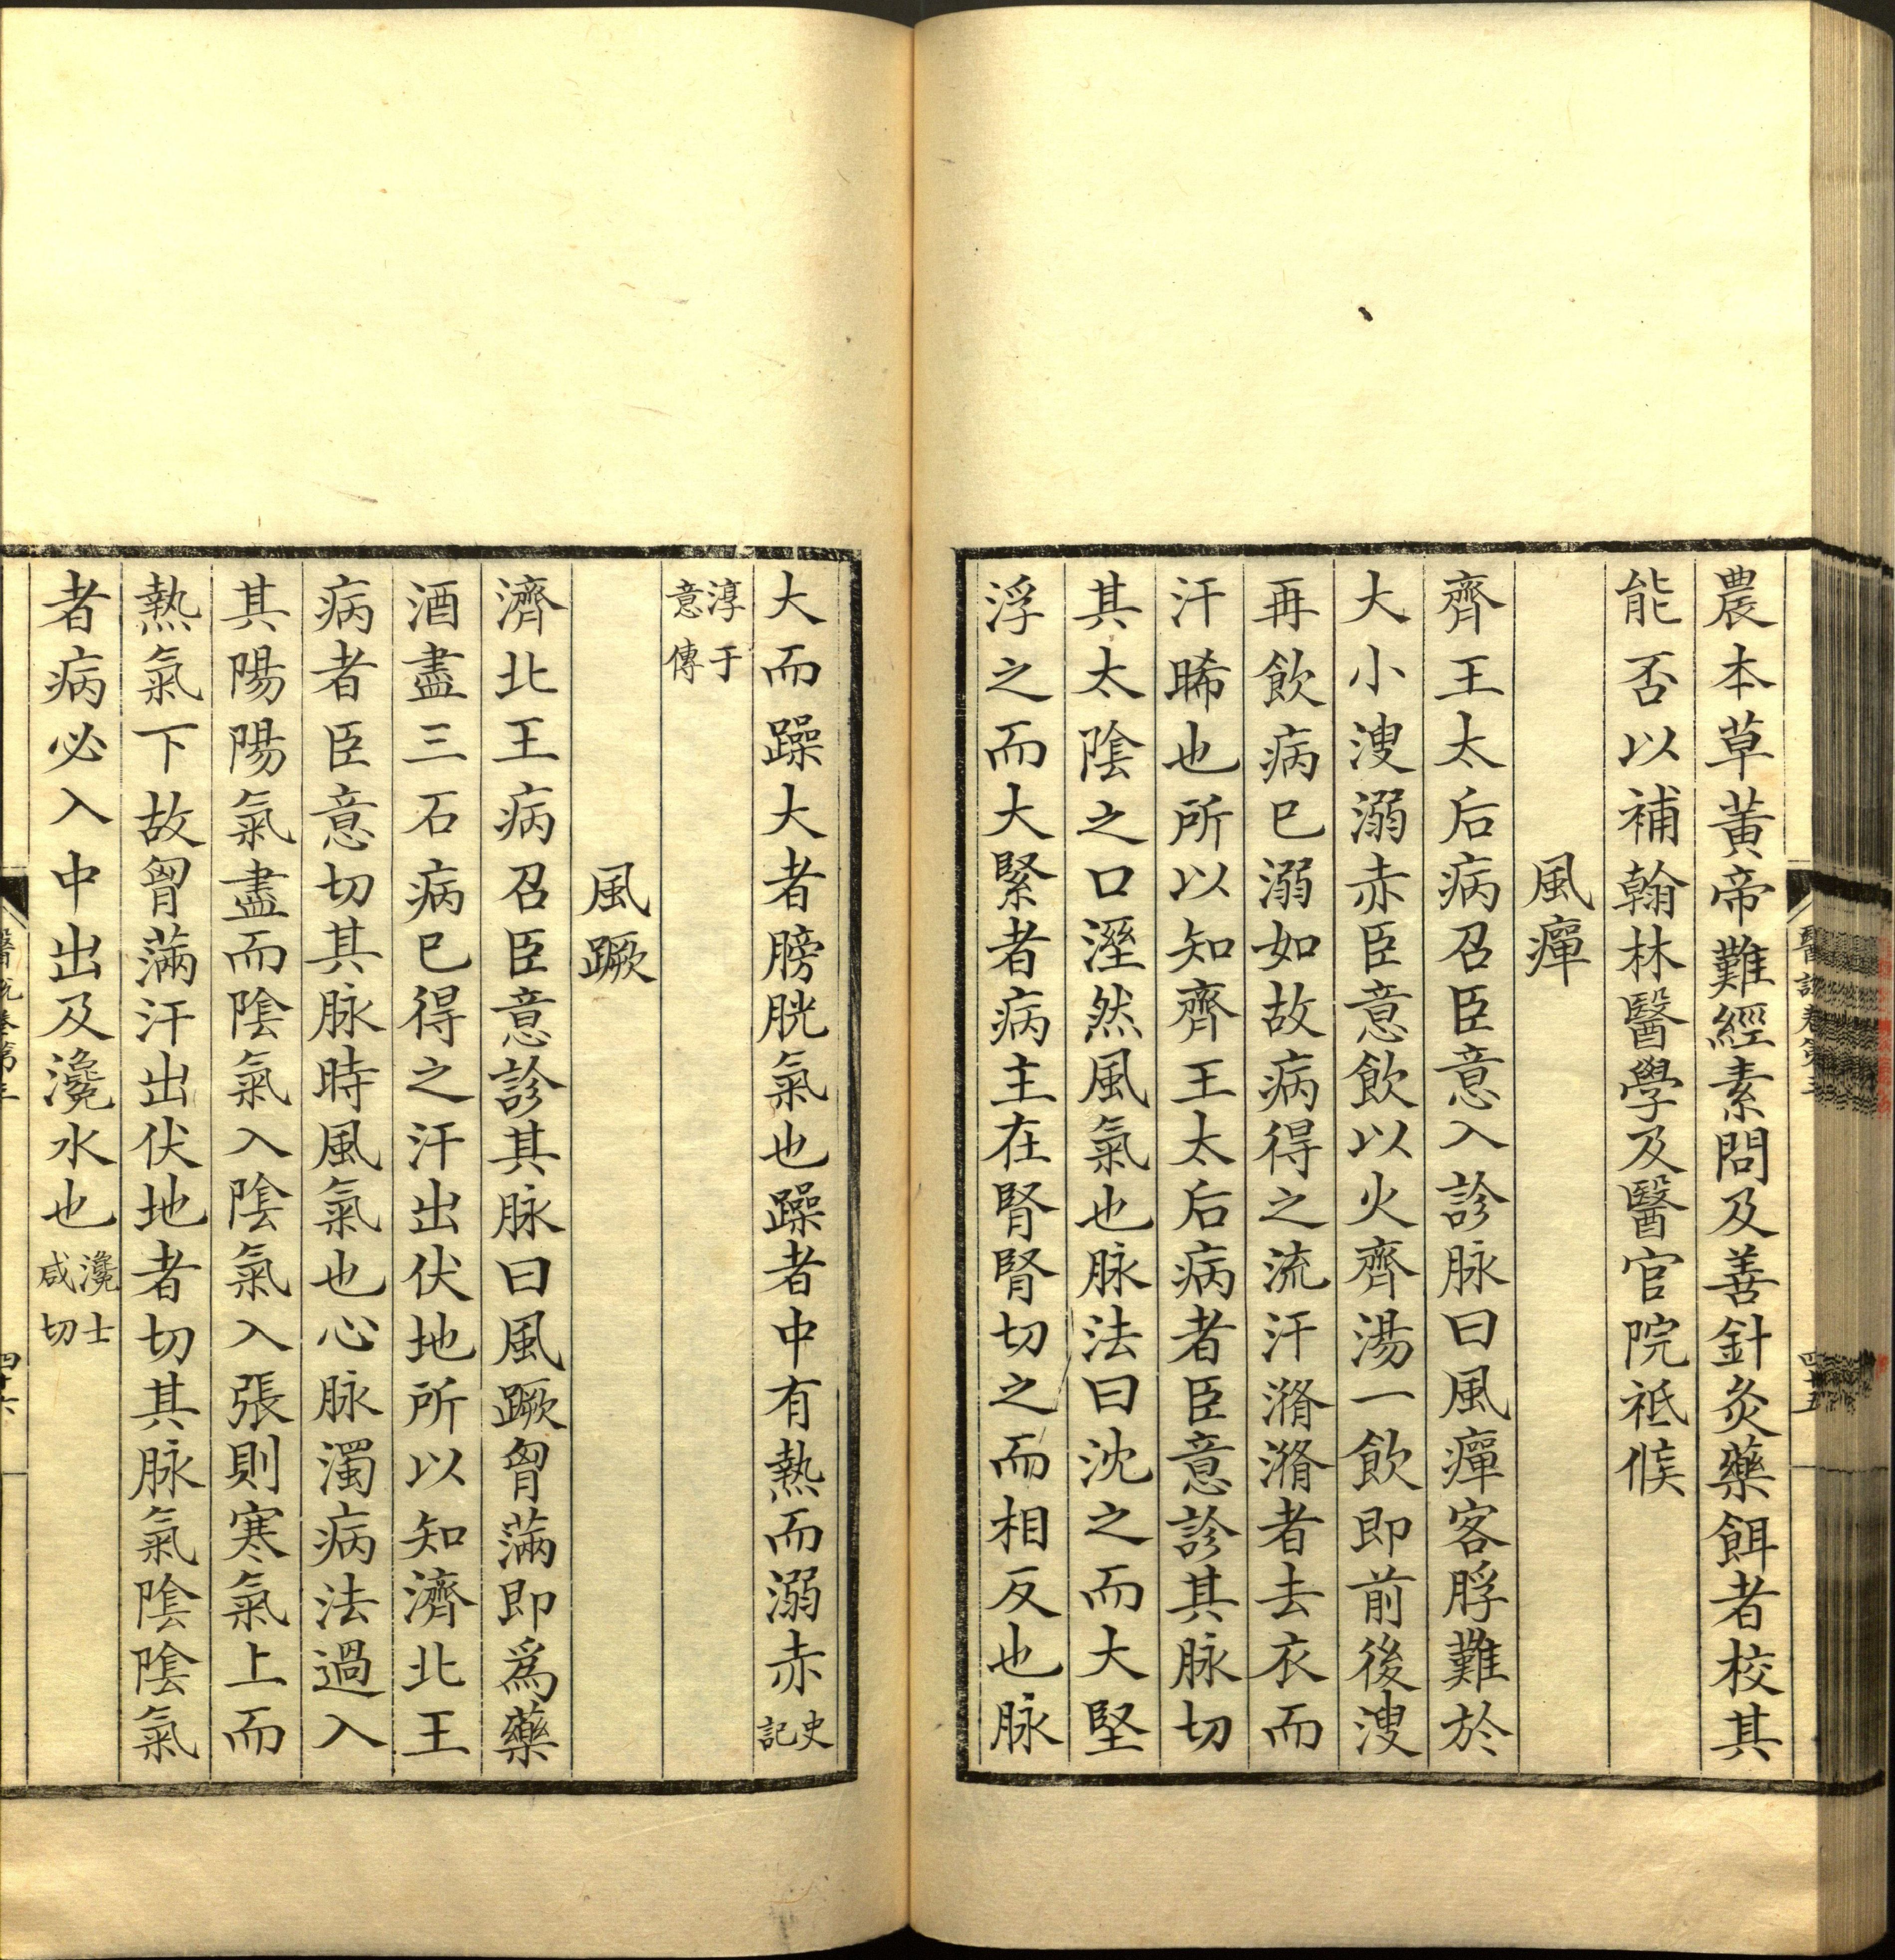 農本草黃帝難經素問及善針灸藥餌者校其
能否以補翰林醫學及醫官院祗候
風癉
齊王太后病召臣意入診脉曰風癉客脬難於
大小溲溺赤臣意飲以火齊湯一飲即前後溲
再飲病已溺如故病得之流汗滫滫者去衣而
汗晞也所以知齊王太后病者臣意診其脉切
其太陰之口溼然風氣也脉法曰沈之而大堅
浮之而大緊者病主在腎腎切之而相反也脉
大而躁大者膀胱氣也躁者中有熱而溺赤史記
淳于意傳
風蹶
濟北王病召臣意診其脉曰風蹶胷滿即爲藥
酒盡三石病已得之汗出伏地所以知濟北王
病者臣意切其脉時風氣也心脉濁病法過入
其陽陽氣盡而陰氣入陰氣入張則寒氣上而
熱氣下故胷滿汗出伏地者切其脉氣陰陰氣
者病必入中出及瀺水也瀺士咸切
醫說卷第三
四十六